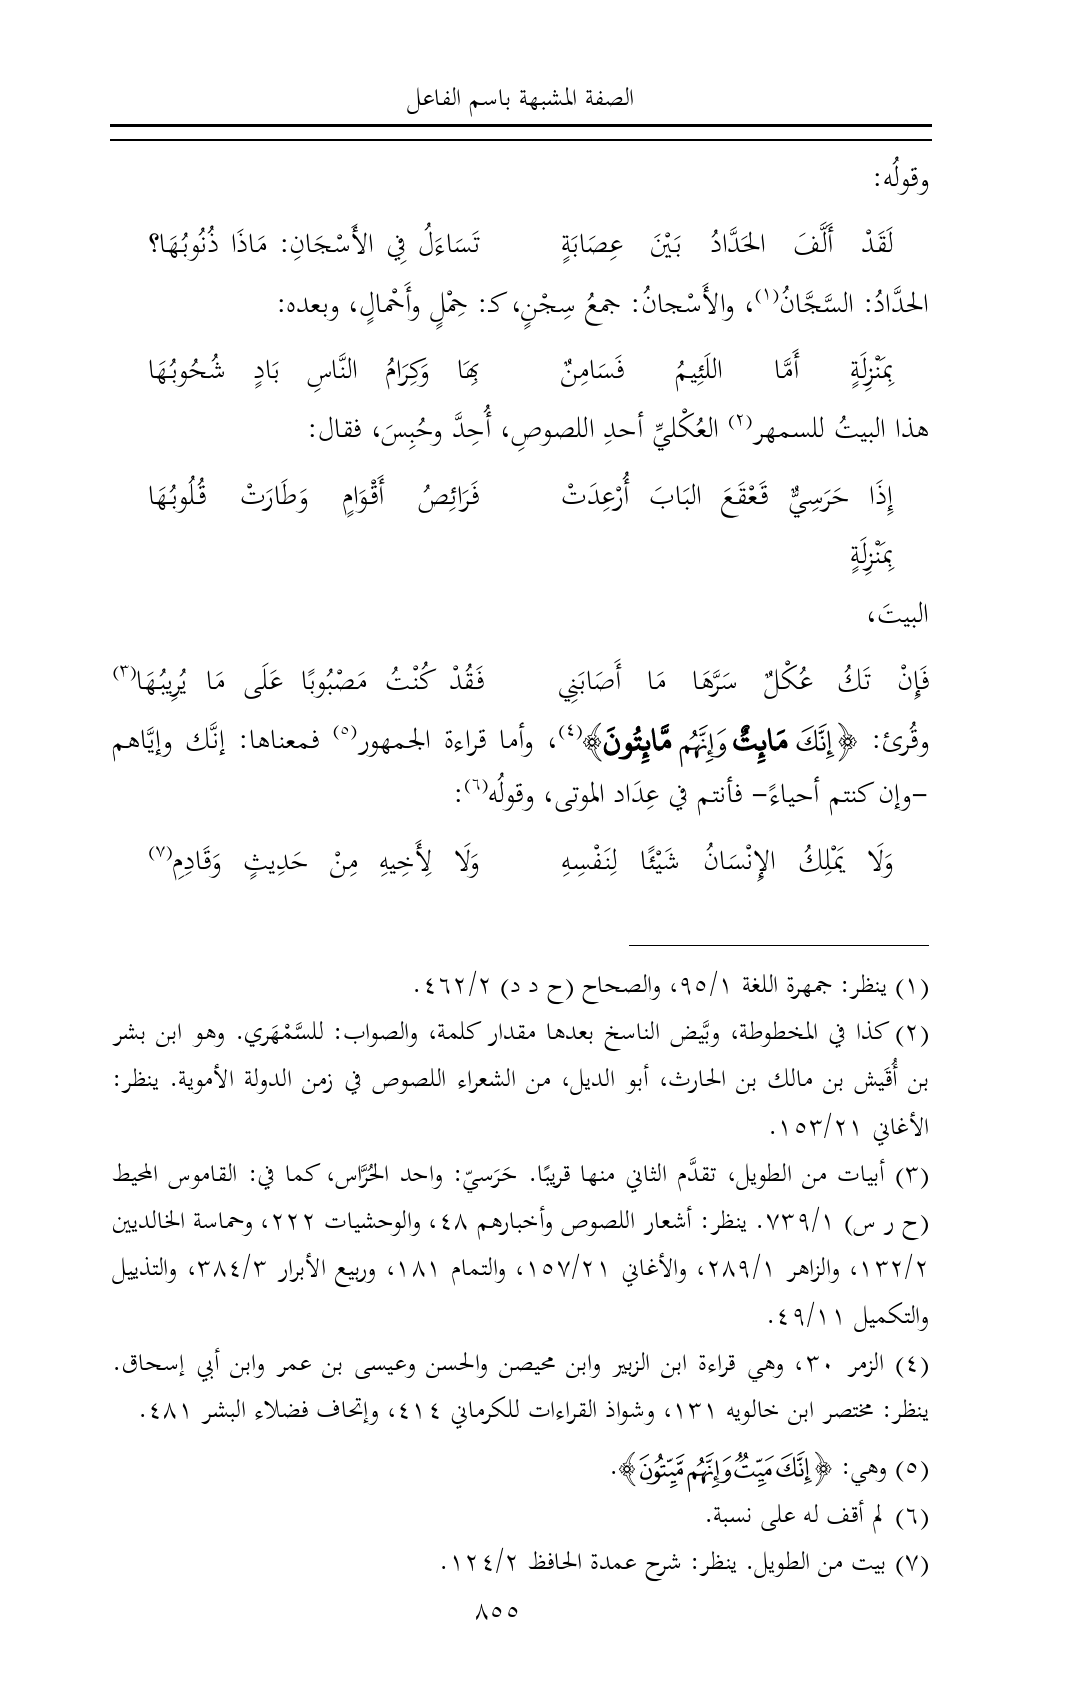 الصفة المشبهة باسم الفاعل
وقولُه:
لَقَدْ أَلَّفَ الحَدَّادُ بَيْنَ عِصَابَةٍ تَسَاءَلُ فِي الأَسْجَانِ: مَاذَا ذُنُوبُهَا؟
الحدَّادُ: السَّجَّانُ(١)، والأَسْجانُ: جمعُ سِجْنٍ، كـ: حِمْلٍ وأَحْمالٍ، وبعده:
بِمَنْزِلَةٍ أَمَّا اللَئِيمُ فَسَامِنٌ بِهَا وَكِرَامُ النَّاسِ بَادٍ شُحُوبُهَا
هذا البيتُ للسمهر(٢) العُكْليِّ أحدِ اللصوصِ، أُحِدَّ وحُبِسَ، فقال:
إِذَا حَرَسِيٌّ قَعْقَعَ البَابَ أُرْعِدَتْ فَرَائِصُ أَقْوَامٍ وَطَارَتْ قُلُوبُهَا
بِمَنْزِلَةٍ
البيتَ،
فَإِنْ تَكُ عُكْلٌ سَرَّهَا مَا أَصَابَنِي فَقُدْ كُنْتُ مَصْبُوبًا عَلَى مَا يُرِيبُهَا(٣)
وقُرئ: ﴿إِنَّكَ مَايِتٌ وَإِنَّهُم مَّايِتُونَ﴾(٤)، وأما قراءة الجمهور(٥) فمعناها: إنَّك وإيَّاهم
–وإن كنتم أحياءً– فأنتم في عِدَاد الموتى، وقولُه(٦):
وَلَا يَمْلِكُ الإِنْسَانُ شَيْئًا لِنَفْسِهِ وَلَا لِأَخِيهِ مِنْ حَدِيثٍ وَقَادِمِ(٧)
(١) ينظر: جمهرة اللغة ٩٥/١، والصحاح (ح د د) ٤٦٢/٢.
(٢) كذا في المخطوطة، وبَّيض الناسخ بعدها مقدار كلمة، والصواب: للسَّمْهَري. وهو ابن بشر
بن أُقَيش بن مالك بن الحارث، أبو الديل، من الشعراء اللصوص في زمن الدولة الأموية. ينظر:
الأغاني ١٥٣/٢١.
(٣) أبيات من الطويل، تقدَّم الثاني منها قريبًا. حَرَسيّ: واحد الحُرَّاس، كما في: القاموس المحيط
(ح ر س) ٧٣٩/١. ينظر: أشعار اللصوص وأخبارهم ٤٨، والوحشيات ٢٢٢، وحماسة الخالديين
١٣٢/٢، والزاهر ٢٨٩/١، والأغاني ١٥٧/٢١، والتمام ١٨١، وربيع الأبرار ٣٨٤/٣، والتذييل
والتكميل ٤٩/١١.
(٤) الزمر ٣٠، وهي قراءة ابن الزبير وابن محيصن والحسن وعيسى بن عمر وابن أبي إسحاق.
ينظر: مختصر ابن خالويه ١٣١، وشواذ القراءات للكرماني ٤١٤، وإتحاف فضلاء البشر ٤٨١.
(٥) وهي: ﴿إِنَّكَ مَيِّتٌ وَإِنَّهُم مَّيِّتُونَ﴾.
(٦) لم أقف له على نسبة.
(٧) بيت من الطويل. ينظر: شرح عمدة الحافظ ١٢٤/٢.
٨٥٥